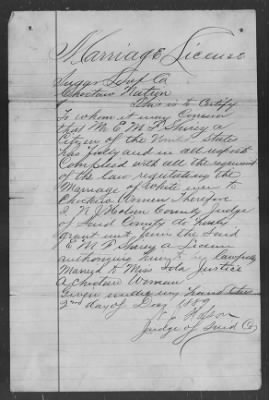 Marriage License
Sugar Loaf Co
Choctaw Nation
This is to Certify
To whom it may Concern
that Mr E M P Shirey a
citizen of the United States
has fully and in all respects
Complied with all the
of the law regulating the
Marriage of White men to
Choctaw Women Therefore
I N J Holson County Judge
of Said County do hereby
grant unto him the Said
E M P Shirey a License
authorizing him to be lawfully
Married to Miss Iola Justice
a Choctaw Woman
Given under my hand this
2nd day of Dec 1899
N J Holson
Judge of Said Co